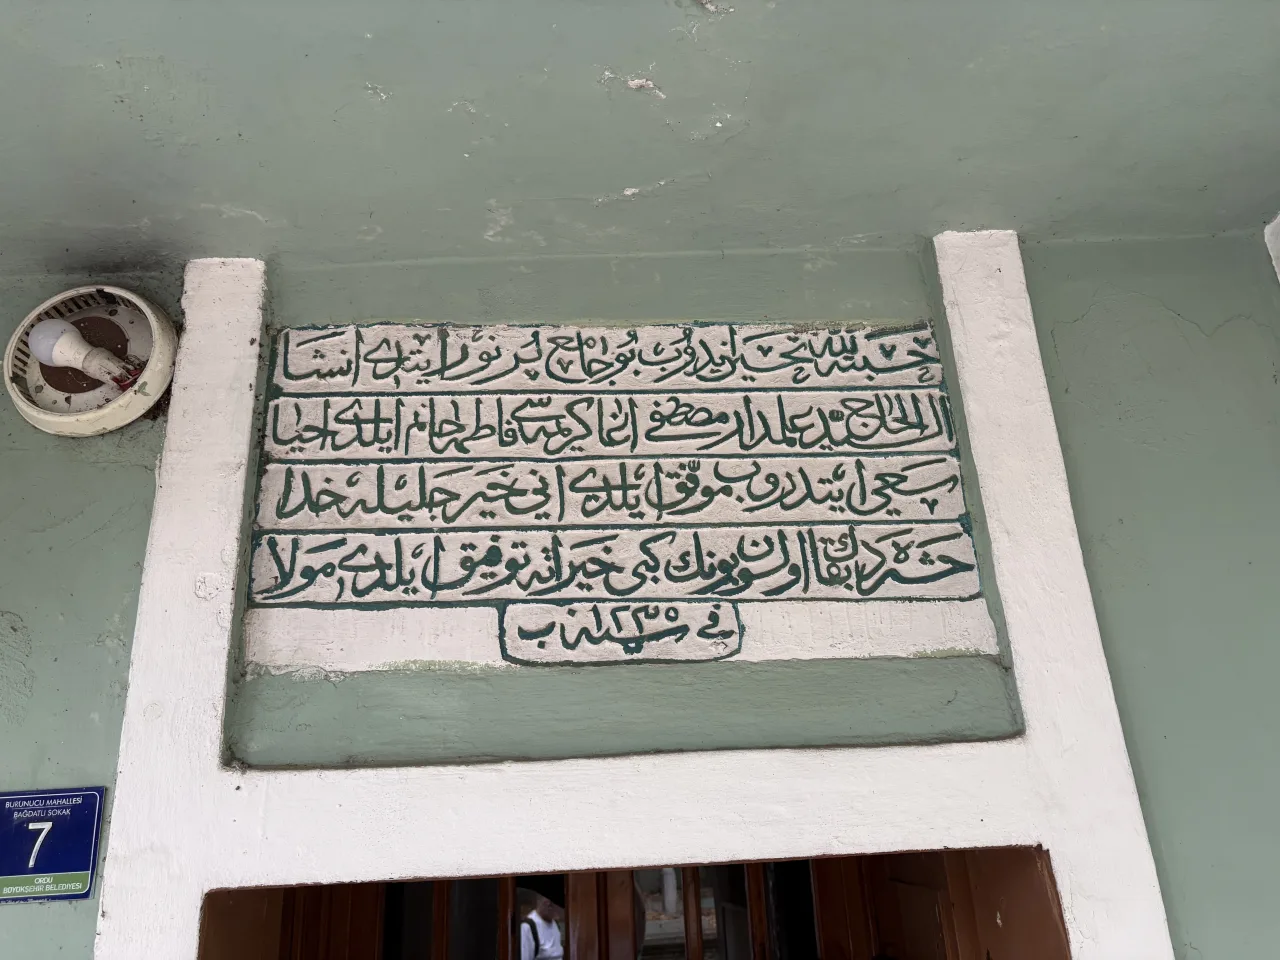 حسبة لله تخير ايدوب بو جامع پر نور ايتدى انشا
ال الحاج سيد علمدار مصطفى اغا كريمه سى فاطمه خانم ايلدى احيا
سعى ايتدروب موفق ايلدى انى خير جليله خدا
حشره دك بقا اولسون بونك كبى خيراته توفيق ايلدى مولا
فى سنة ١٢٣٥ ب
BURUNUCU MAHALLESİ
BAĞDATLI SOKAK
7
ORDU
BÜYÜKŞEHİR BELEDİYESİ